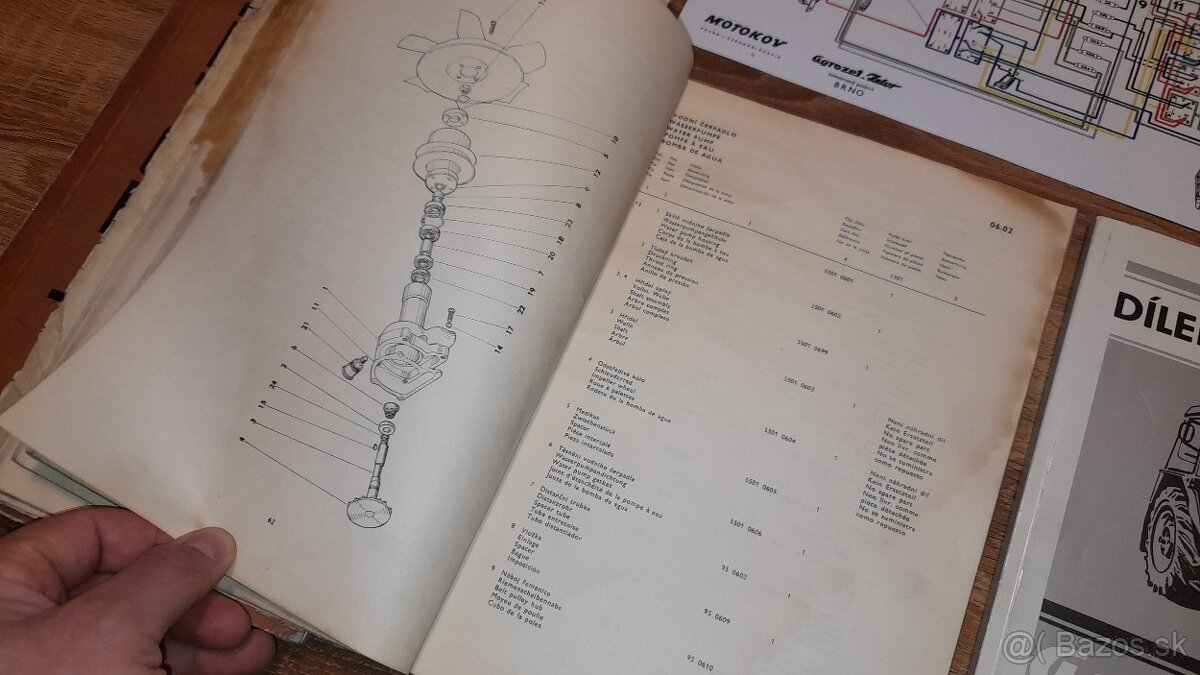 MOTOKOV
PRAHA - CZECHOSLOVAKIA
Gyrozet Zetor
BRNO
9
11
10
6
12
9
8
23
18
20
7
19
22
17
14
1
11
21
6
2
24
15
3
4
62
VODNÍ ČERPADLO
WASSERPUMPE
WATER PUMP
POMPE À EAU
BOMBA DE AGUA
06.02
1 Skříň vodního čerpadla
Wasserpumpengehäuse
Water pump housing
Corps de la bombe à eau
Caja de la bomba de agua
5501 0601
1
2 Tlačný kroužek
Druckring
Thrust ring
Anneau de pression
Anillo de presión
5501 0602
1
3, 4 Hřídel úplný
Vollst. Welle
Shaft assembly
Arbre complet
Arbol completo
5501 0699
1
3 Hřídel
Welle
Shaft
Arbre
Arbol
5501 0603
1
Není náhradní díl
Kein Ersatzteil
No spare part
Non livr. comme
pièce détachée
No se suministra
como repuesto
4 Odstředivé kolo
Schleuderrad
Impeller wheel
Roue à palettes
Rodete de la bomba de agua
5501 0604
1
Není náhradní díl
Kein Ersatzteil
No spare part
Non livr. comme
pièce détachée
No se suministra
como repuesto
5 Mezikus
Zwischenstück
Spacer
Pièce intercale
Pieza intercalada
5501 0605
1
6 Těsnění vodního čerpadla
Wasserpumpendichtung
Water pump gasket
Joint d'étanchéité de la pompe à eau
Junta de la bomba de agua
5501 0606
1
7 Distanční trubka
Distanzrohr
Spacer tube
Tube entretoise
Tubo distanciador
95 0602
1
8 Vložka
Einlage
Spacer
Bague
Imposición
95 0609
1
9 Náboj řemenice
Riemenscheibennabe
Belt pulley hub
Moyeu de poulie
Cubo de la polea
95 0610
DÍLE
@( Bazos.sk